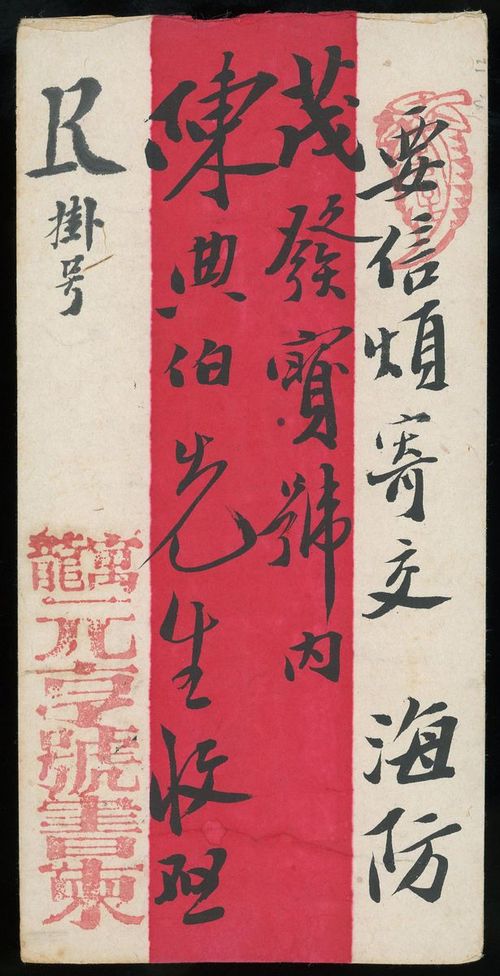 要信煩寄交 海防
茂發寶號内
陳典伯先生收照
R
掛号
萬龍
元亨號書柬